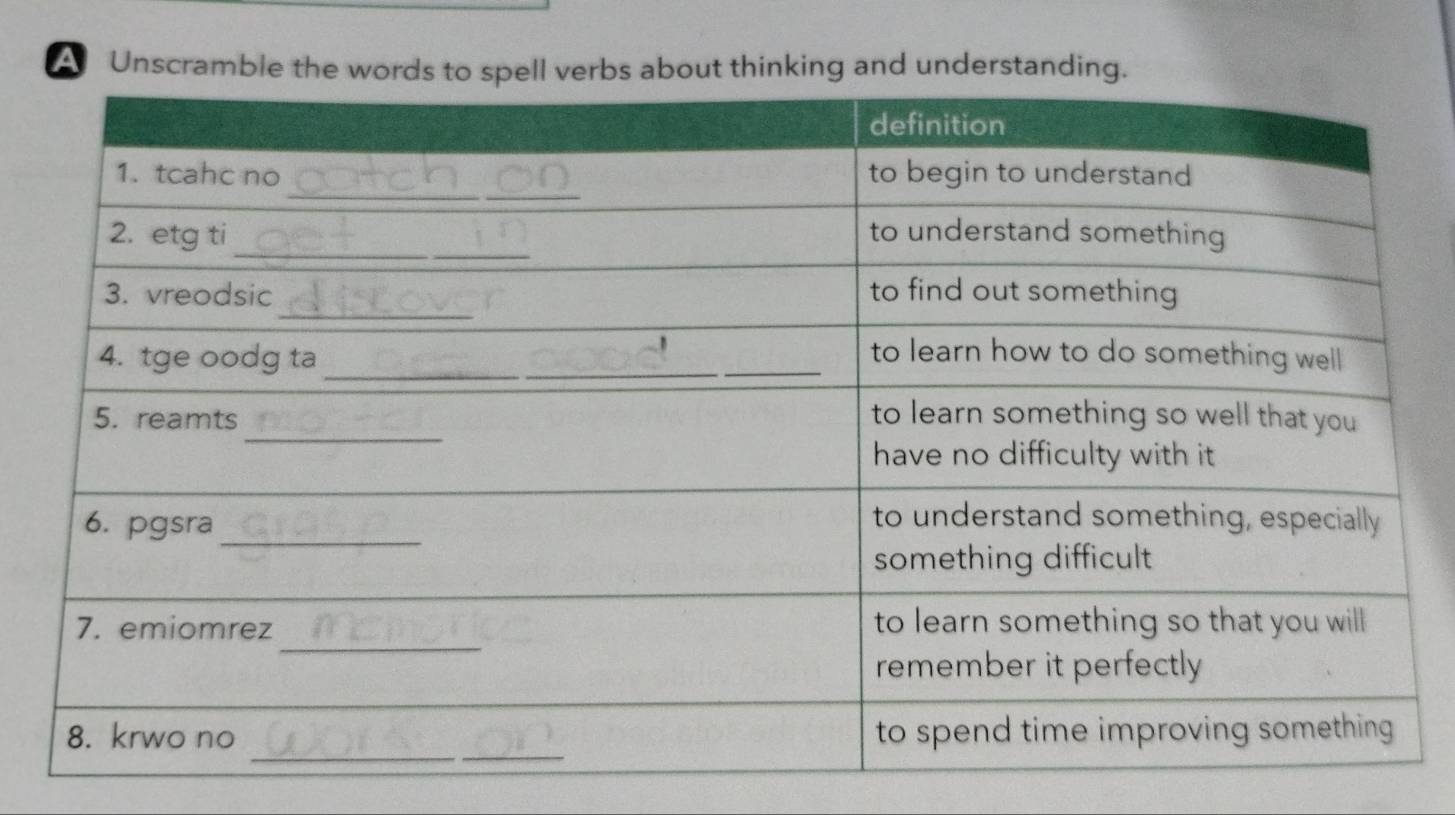 A Unscramble the words to spell verbs about thinking and understanding.
definition
1. tcahc no catch on to begin to understand
2. etg ti get in to understand something
3. vreodsic discover to find out something
4. tge oodg ta good to learn how to do something well
5. reamts to learn something so well that you
have no difficulty with it
6. pgsra grasp to understand something, especially
something difficult
7. emiomrez to learn something so that you will
remember it perfectly
8. krwo no work on to spend time improving something